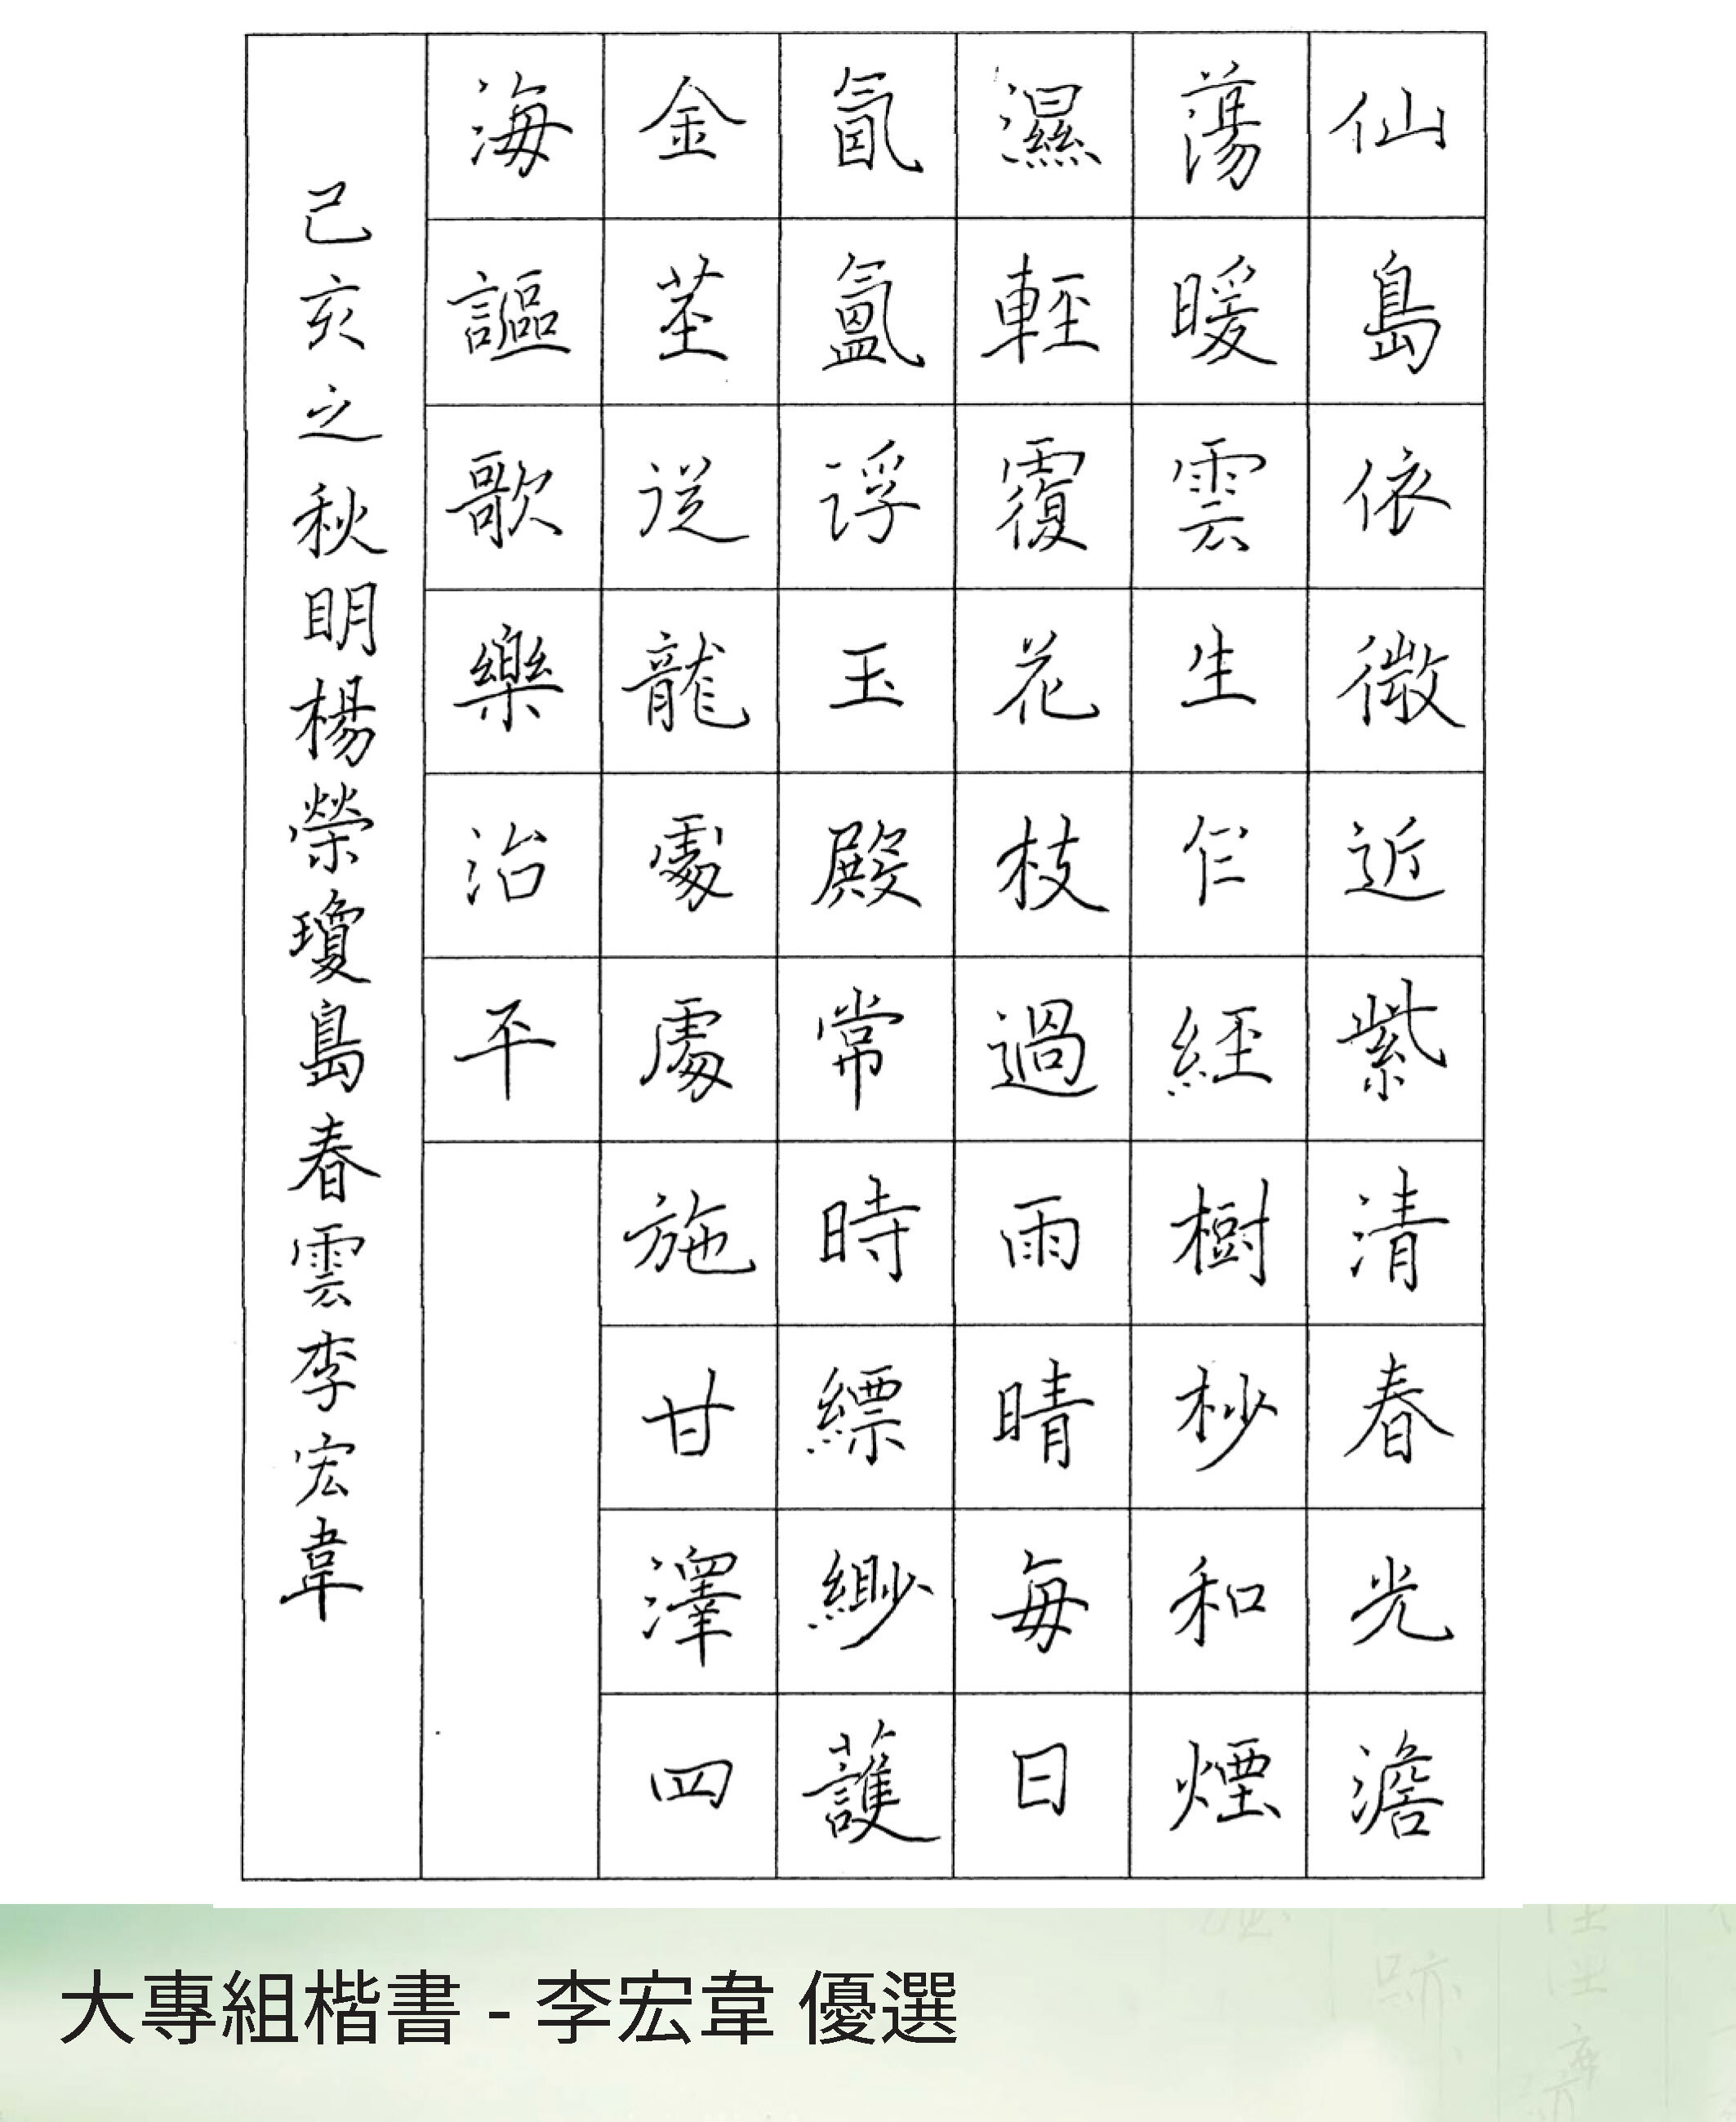 仙島依微近紫清春光澹
蕩暖雲生乍經樹杪和煙
濕輕覆花枝過雨晴每日
氤氳浮玉殿常時縹緲護
金莖從龍處處施甘澤四
海謳歌樂治平
己亥之秋明楊榮瓊島春雲李宏韋
大專組楷書 - 李宏韋 優選